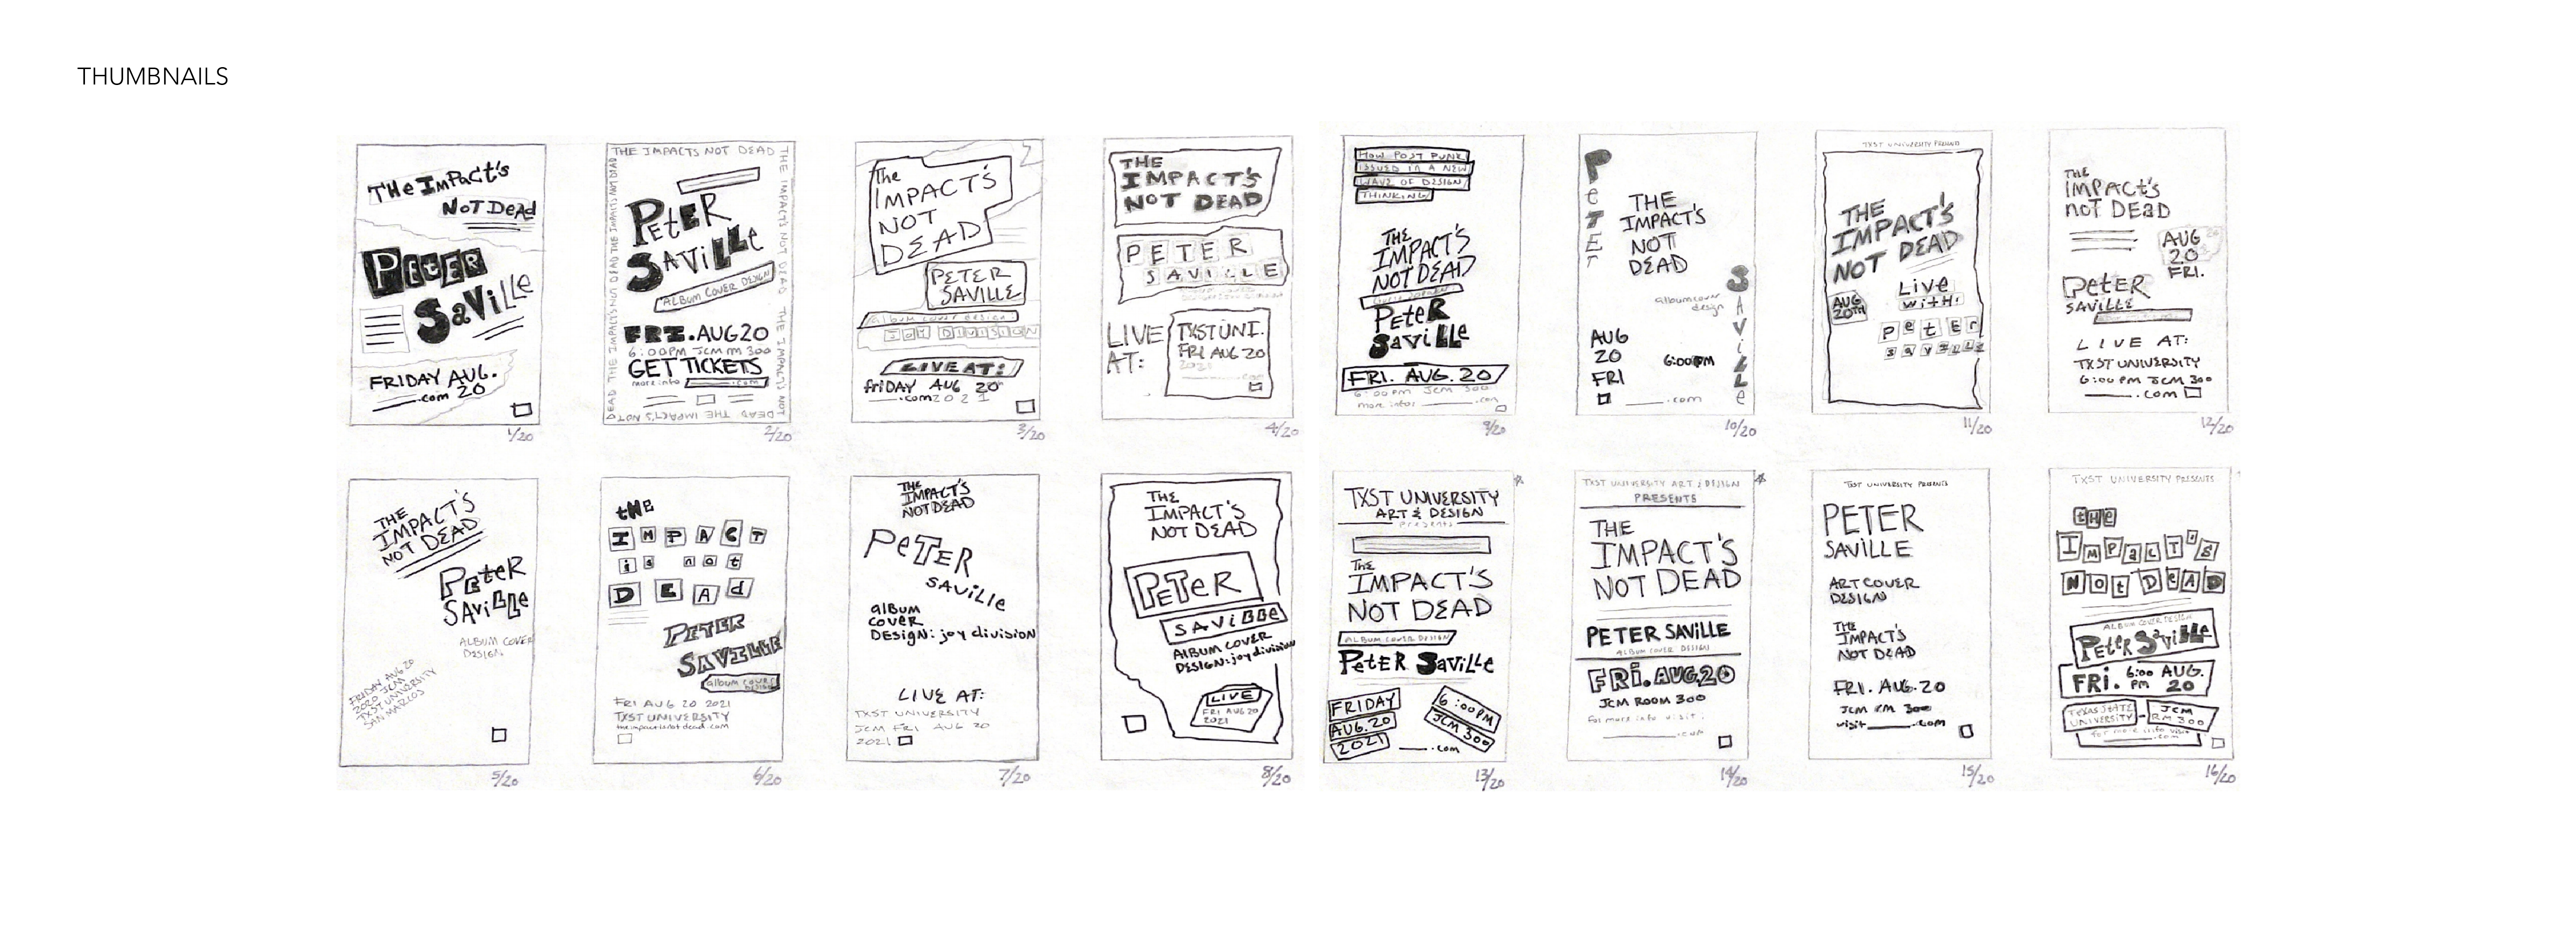 THUMBNAILS
THE ImPacT's
NoT Dead
PeTER
SaVille
FRIDAY AUG.
20
.com
1/20
THE IMPACTS NOT DEAD
THE IMPACT'S NOT DEAD THE IMPACT'S NOT
DEAD THE IMPACT'S NOT
DEAD THE IMPACTS NOT DEAD THE IMPACTS NOT DEAD
PETER
SAVILLE
ALBUM COVER DESIGN
FRI. AUG 20
6:00PM JCM rm 300
GET TICKETS
more info .com
2/20
The
IMPACT'S
NOT
DEAD
PETER
SAVILLE
album cover design:
JOY DIVISION
LIVE AT:
friDAY AUG 20
.com 2021
3/20
THE
IMPACT'S
NOT DEAD
PETER
SAVILLE
LIVE
AT:
TXST UNI.
FRI AUG 20
2021
.com
4/20
HOW POST PUNK
ISSUED IN A NEW
WAVE OF DESIGN
THINKING
THE
IMPACT'S
NOT DEAD
PeteR
Saville
FRI. AUG. 20
6:00 pm JCM 300
more info: .com
9/20
PeTEr
THE
IMPACT'S
NOT
DEAD
SAViLLe
album cover
design
AUG
20
FRI
6:00pm
.com
10/20
TXST UNIVERSITY PRESENTS
THE
IMPACT'S
NOT DEAD
AUG
20TH
Live
with:
PetEr
saville
11/20
THE
IMPACt's
noT DEaD
AUG
20
FRI.
PeteR
SAVILLE
LIVE AT:
TXST UNIVERSITY
6:00 PM JCM 300
.com
12/20
THE
IMPACT'S
NOT DEAD
PeteR
SAViLLe
ALBUM COVER
DESIGN
FRIDAY AUG 20
2020 JCM
TXST UNIVERSITY
SAN MARCOS
5/20
tHE
ImPACT
is not
DEAd
PETER
SAVILLE
album cover
design
FRI AUG 20 2021
TXST UNIVERSITY
theimpactisnotdead.com
6/20
THE
IMPACT'S
NOT DEAD
PeTER
SAViLLe
album
cover
Design: joy division
LIVE AT:
TXST UNIVERSITY
JCM FRI AUG 20
2021
7/20
THE
IMPACT'S
NOT DEAD
PETeR
SAViBBe
ALBUM COVER
DESIGN: joy division
LIVE
FRI AUG 20
2021
8/20
TXST UNIVERSITY
ART & DESIGN
presents
The
IMPACT'S
NOT DEAD
ALBUM COVER DESIGN
PeteR SaviLLe
FRIDAY
AUG. 20
2021
6:00PM
JCM 300
.com
13/20
TXST UNIVERSITY ART & DESIGN
PRESENTS
THE
IMPACT'S
NOT DEAD
PETER SAVILLE
ALBUM COVER DESIGN
FRi. AUG. 20
JCM ROOM 300
for more info visit:
.com
14/20
TXST UNIVERSITY PRESENTS
PETER
SAVILLE
ART COVER
DESIGN
THE
IMPACT'S
NOT DEAD
FRI. AUG. 20
JCM RM 300
visit .com
15/20
TXST UNIVERSITY PRESENTS
tHE
ImPacT'S
NOt DEAD
ALBUM COVER DESIGN
Peter Saville
FRI. 6:00 PM AUG. 20
TEXAS STATE
UNIVERSITY
-
JCM
RM 300
for more info visit
.com
16/20